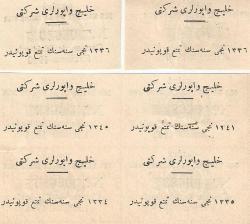 خلیج واپورلری شركتی
١٣٣٦ نجی سنه‌سنك تمتع قوپونیدر
خلیج واپورلری شركتی
١٣٣٦ نجی سنه‌سنك تمتع قوپونیدر
خلیج واپورلری شركتی
١٢٤١ نجی سنه‌سنك تمتع قوپونیدر
خلیج واپورلری شركتی
١٣٤٥ نجی سنه‌سنك تمتع قوپونیدر
خلیج واپورلری شركتی
١٣٣٥ نجی سنه‌سنك تمتع قوپونیدر
خلیج واپورلری شركتی
١٣٣٤ نجی سنه‌سنك تمتع قوپونیدر